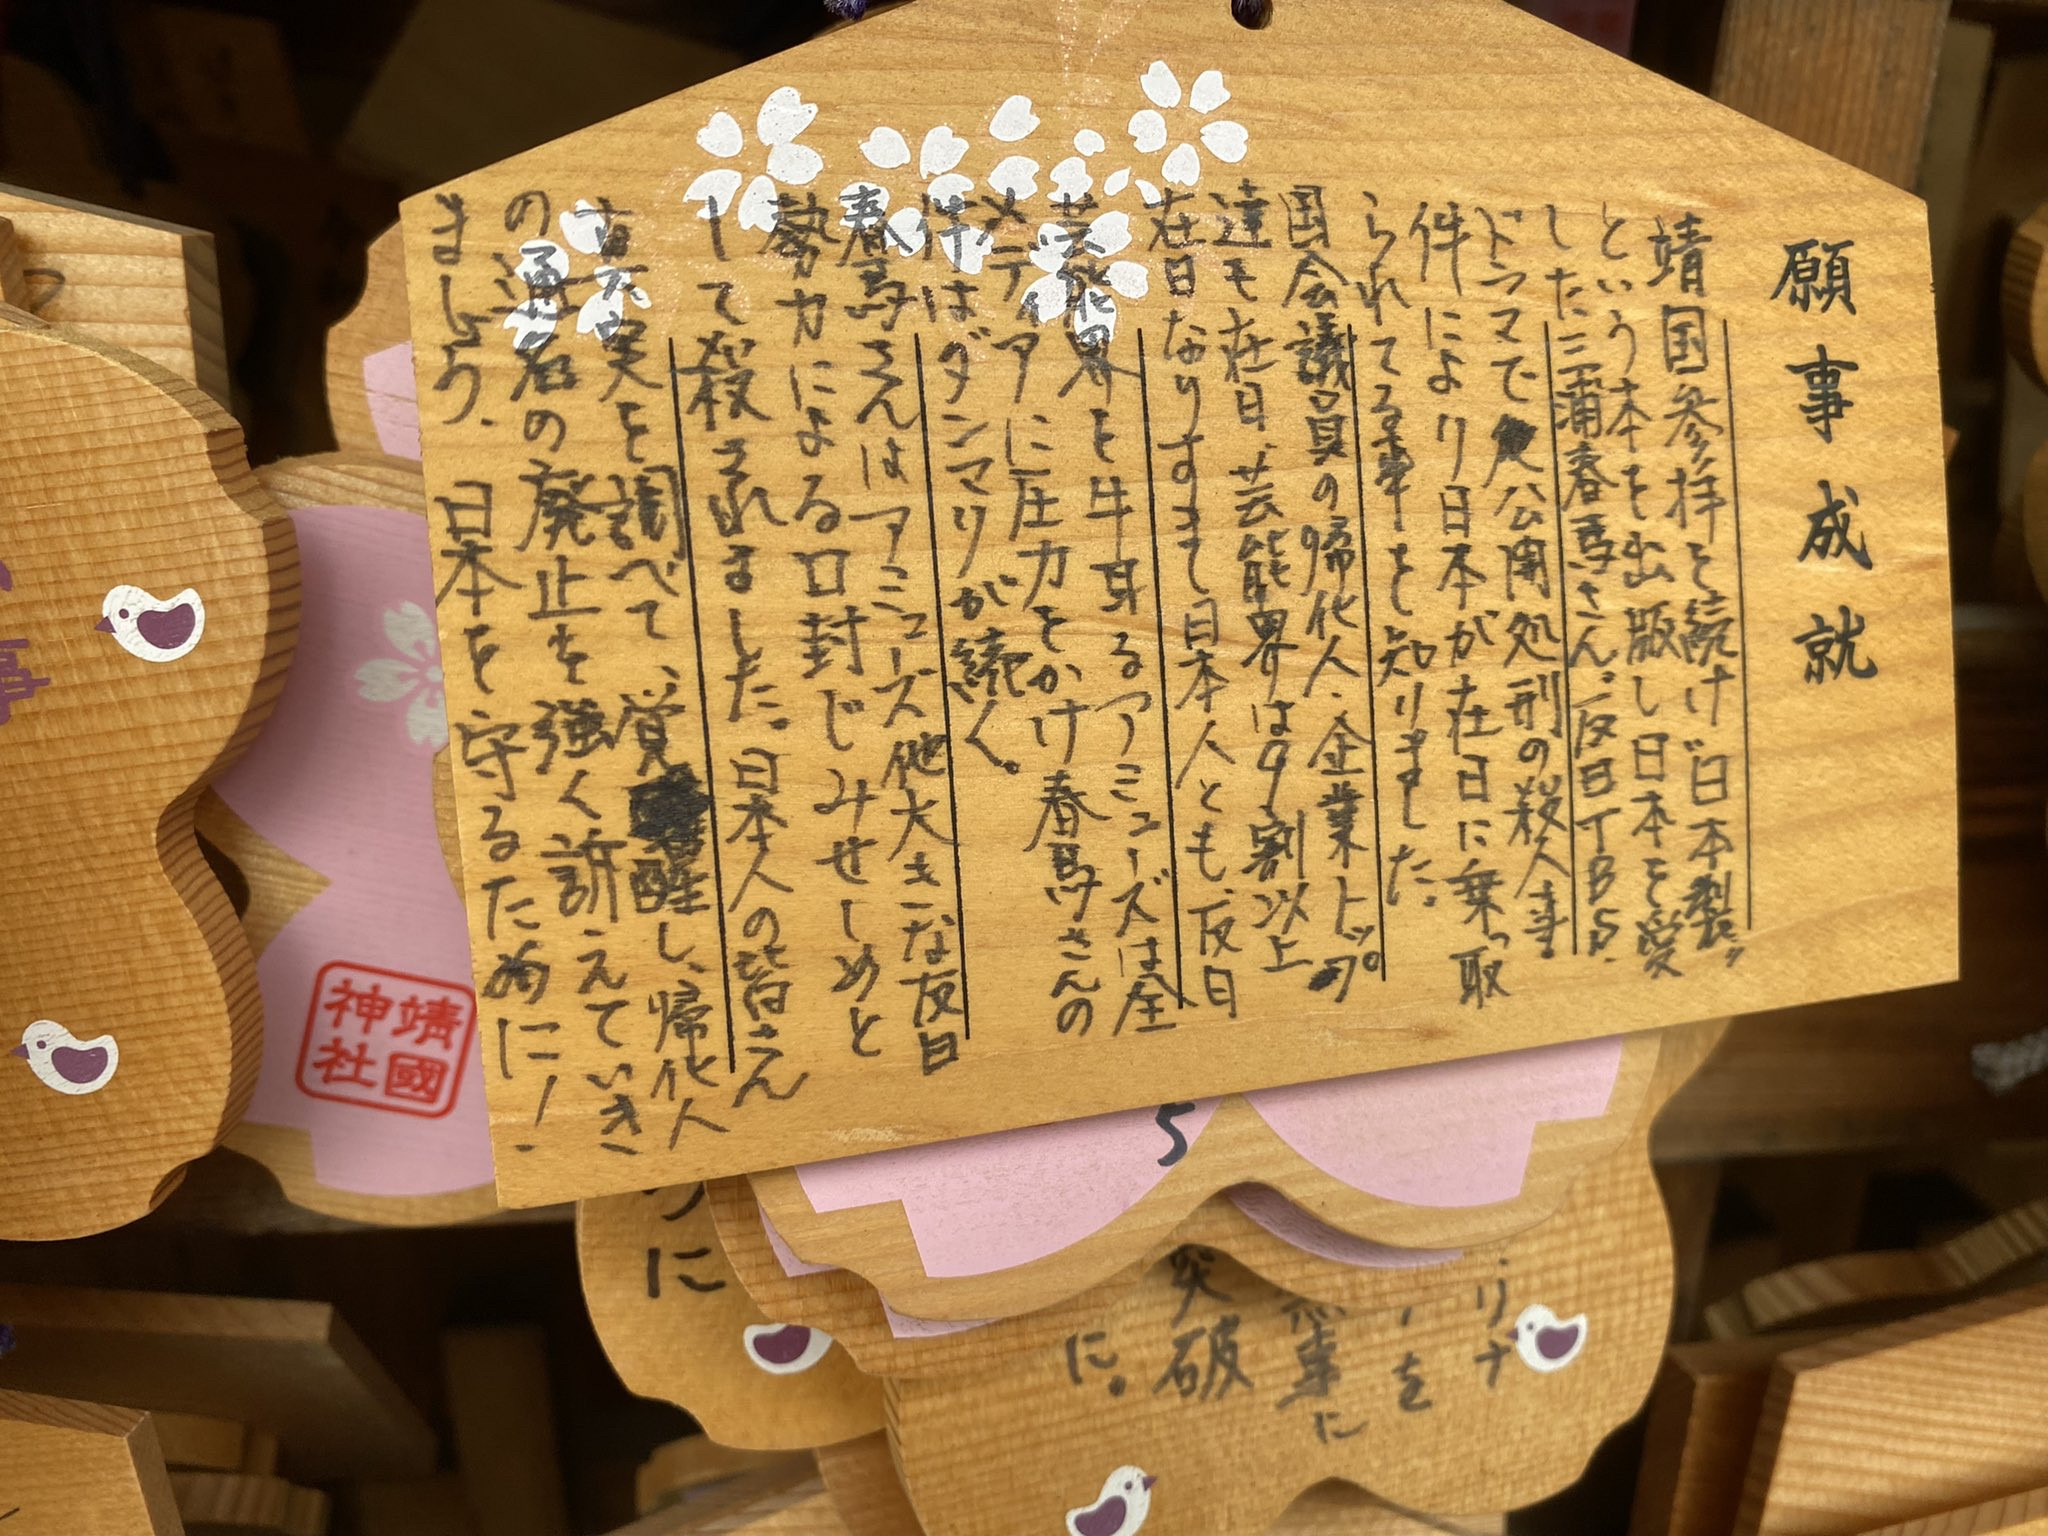 願事成就
靖国参拝を続け"日本製"
という本を出版し日本を愛
した三浦春馬さん。反日TBS.
ドラマで公開処刑の殺人事
件により日本が在日に乗っ取
られてる事を知りました。
国会議員の帰化人・企業トップ
達も在日"芸能界は9割以上
在日なりすまて日本人とも、反日
芸能界を牛耳るアミューズは全
メディアに圧力をかけ春馬さんの
件はダンマリが続く。
春馬さんはアミューズ他大きな反日
勢力による口封じみせしめと
して殺されました。日本人の皆さん
真実を調べて、覚醒し、帰化人
の通名の廃止を強く訴えていき
ましょう、日本を守るために!
靖國
神社
5
に
リナ
を
事に
突破
に。